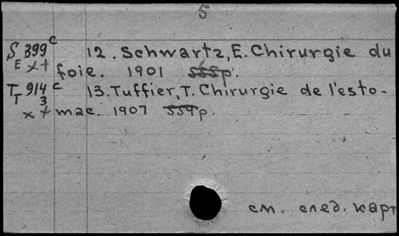 5
S 399 c 12. Schwartz, E. Chirurgie du
E x+ foie. 1901 555p.
T 914 c 13. Tuffier, T. Chirurgie de l'esto-
T 3 mac. 1907 559p.
x +
см. след. карт